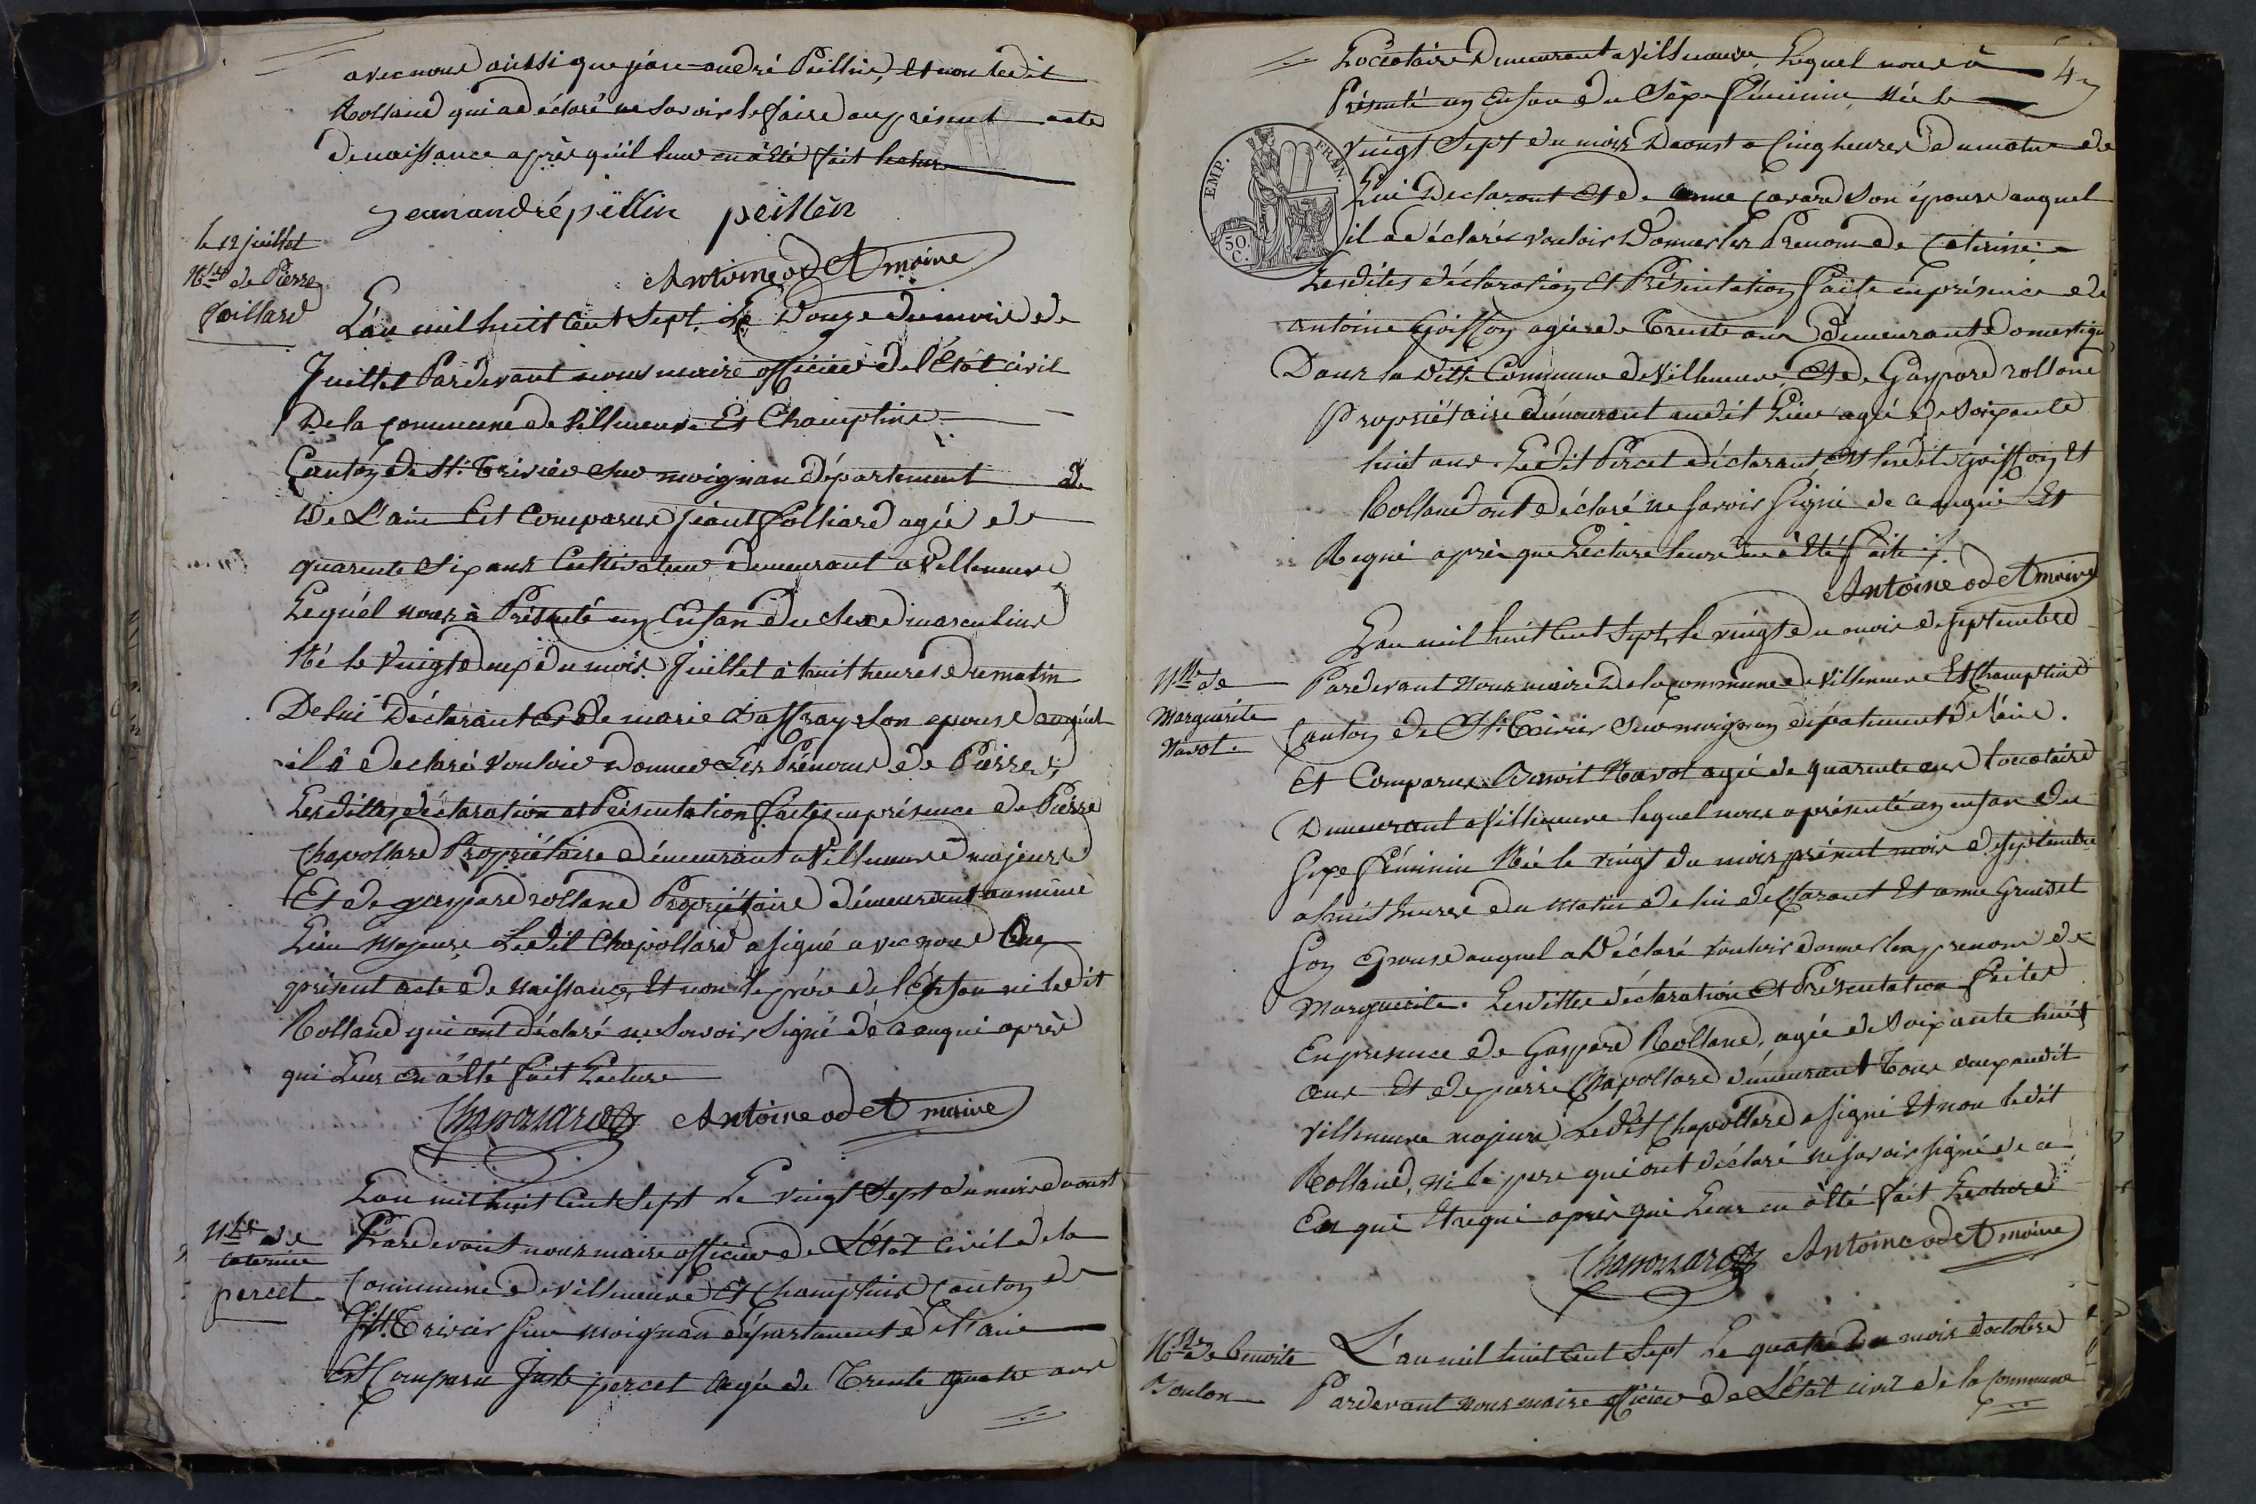 avec nous ainsi que jean andré Peillin, et non ledit
Rolland qui a déclaré ne savoir le faire au présent acte
de naissance après qu'il leur en à été fait lecture
jeanandrépeillin peillin
Antoine odet maire
le 12 juillet
N.ce de Pierre
foillard
L'an mil huit Cent Sept, Le Douze du mois de
Juillet Pardevant nous maire officier de l'état civil
De la commune de Villeneuve Et Champtins
Canton de St. Trivier sur moignan département de
De L'ain Est Comparu jean folliard agée de
quarente six ans Cultivateur demeurant a Villeneuve
Lequel nous à Présenté un Enfan du Sexe masculins
Né le du mois Juillet à huit heures du matin
De lui Déclarant Et de marie son epouse auquel
il à déclaré vouloir Donner Les Prénoms de Pierre,
Lesdittes déclaration et Présentation faites en présence de Pierre
Chapollard Propriétaire demeurant a Villeneuve majeurs
Et de gaspard rolland Propriétaire démeurant au même
Lieu Majeurs Ledit Chapollard a signé avec nous Le
présent acte de naissance, Et non le père de l'Enfan ni ledit
Rolland qui ont déclaré ne Savoir Signé de ce enqui après
qui Leur en à été fait Lecture
Chapollard Antoine odet maire
N.ce de
caterine
percet
L'an mil huit Cent Sept Le vingt Sept du mois Daoust
Pardevant nous maire officier de L'état Civil de la
Commune de Villeneuve Et Champtins Canton de
St. Trivier sur moignan département de l'ain
Est Comparu Juste percet Agée de Trente quatre ans
4
Locataire Demeurant a Villeneuve, Lequel nous à
Présenté un Enfan du Sexe féminin, Née le
vingt Sept du mois Daoust a Cinq heures du matin de
EMP. FRAN.
50. C.
Lui Declarant Et de anne son épouse auquel
il a déclaré vouloir Donner les Prenoms de Caterine
Lesdites déclaration Et Présentation faite enprésence de
antoine Goiffon agée de Trente ans Demeurant domestique
Dans la ditte Commune de Villeneuve, Et de Gaspard rolland
Propriétaire demeurant audit Lieu agée de soixante
huit ans. Ledit Percet déclarant, et lesdits Goiffon Et
Rolland ont déclaré ne savoir Signé de ce enquie Et
Requi après que Lecture leurs en à été faite
Antoine odet maire
N.ce de
Marguerite
Navot.
L'an mil huit Cent Sept, le vingt du mois de septembre
Pardevant nous maire De la commune de Villeneuve Et Champtins
Canton de St. Trivier sur moignan département de l'ain.
Est Comparu Benoit Navot agée de quarente ans locataire
Demeurant a Villeneuve lequel nous a présenté un enfan du
sexe féminin Née le vingt du mois présent mois de septembre
a huit heures du matin de lui déclarant Et anne
son Epouse auquel a Déclaré vouloir donner les prenoms de
Marguerite. Lesdittes déclaration Et Présentation faites
En presence de Gaspard Rolland, agée de soixante huit
ans Et de pierre Chapollard demeurant Tous deux audit
Villeneuve majeurs Ledit Chapollard a signé Et non ledit
Rolland, ni le pere qui ont déclaré ne savoir signé de ce
En qui Et requi après qui Leur en à été fait Lecture
Chapollard Antoine odet maire
N.ce de benoite
Boulon
L'an mil huit Cent Sept Le quatre Du mois doctobre
Pardevant nous maire officier de L'état civil de la Commune